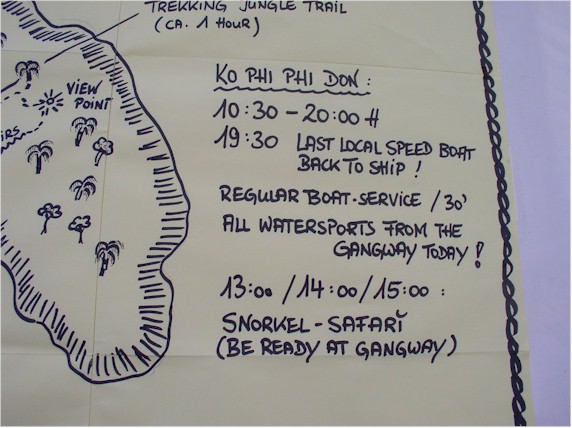 TREKKING JUNGLE TRAIL
(CA. 1 HOUR)
VIEW
POINT
KO PHI PHI DON :
10:30 - 20:00 H
19:30 LAST LOCAL SPEED BOAT
BACK TO SHIP !
REGULAR BOAT-SERVICE / 30'
ALL WATERSPORTS FROM THE
GANGWAY TODAY !
13:00 / 14:00 / 15:00 :
SNORKEL - SAFARI
(BE READY AT GANGWAY)